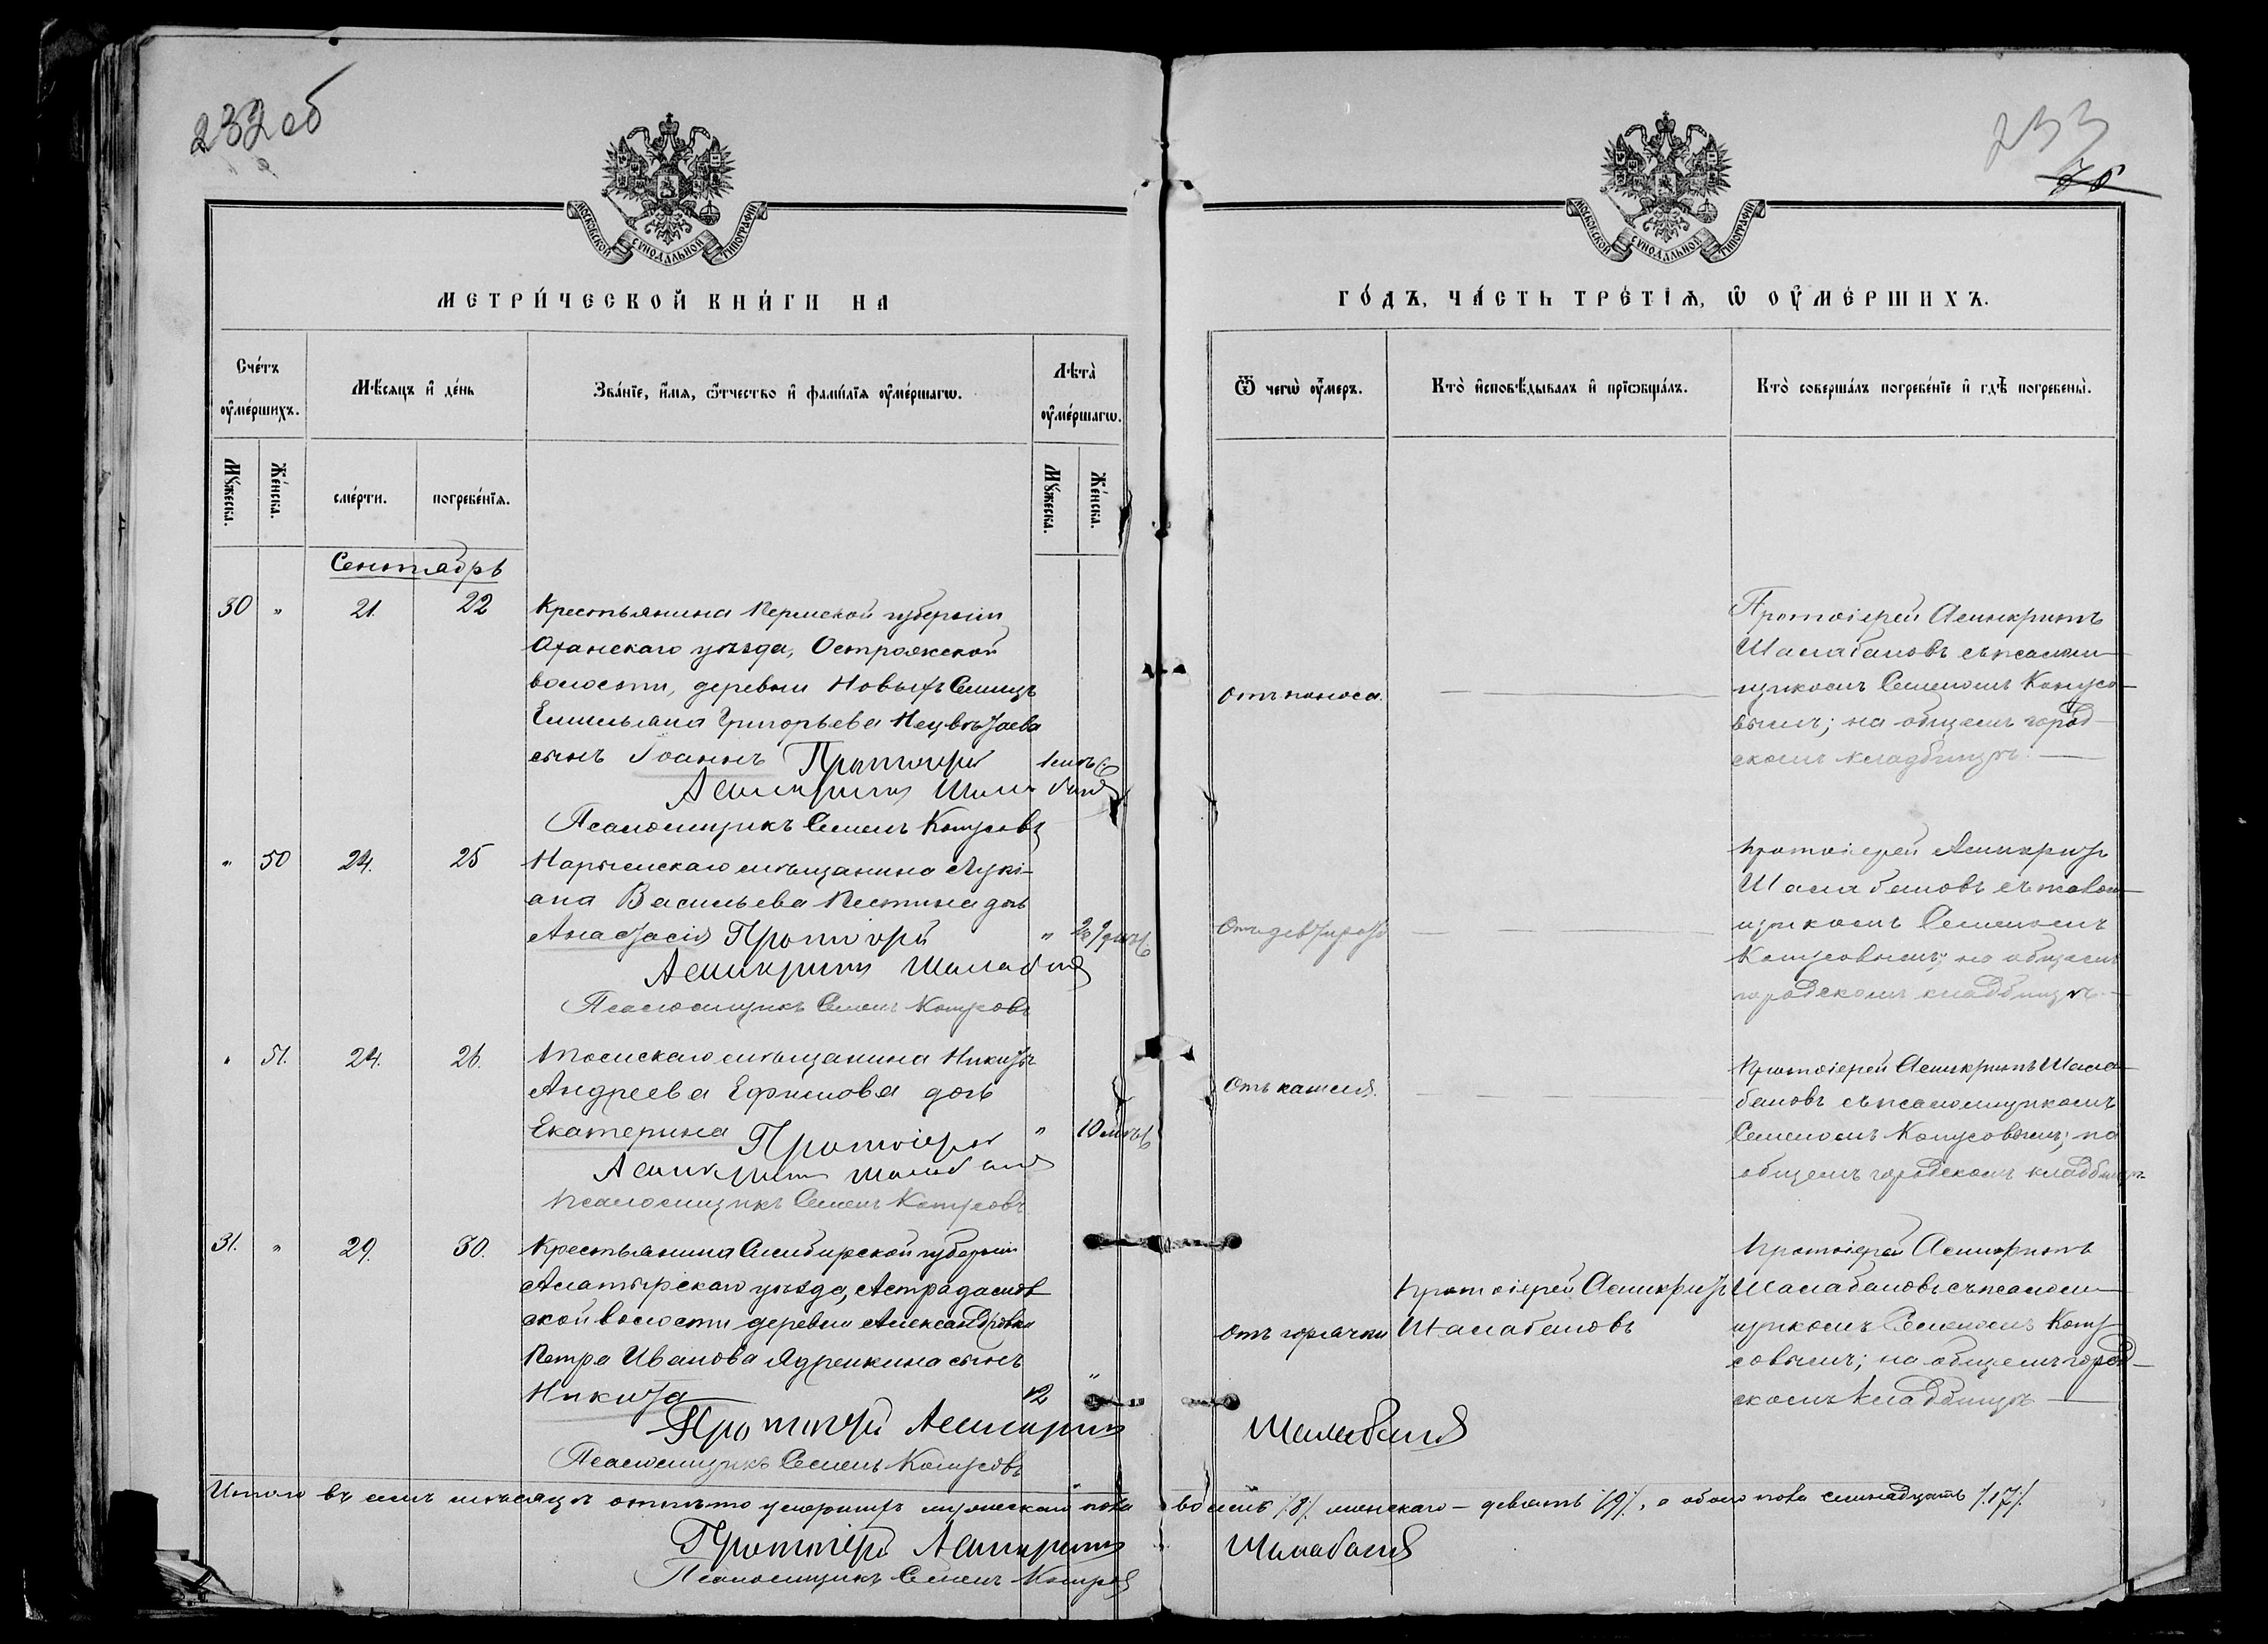 232 об
233
МОСКОВСКОЙ СѴНОДАЛЬНОЙ ТИПОГРАФІИ
МОСКОВСКОЙ СѴНОДАЛЬНОЙ ТИПОГРАФІИ
МЕТРИ́ЧЕСКОЙ КНИ́ГИ НА
ГО́ДЪ, ЧА́СТЬ ТРЕ́ТІѦ, Ѡ҆ ОУ҆МЕ́РШИХЪ.
Счетъ оумершихъ.
Мѣсяцъ и день
Званїе, имя, ѿчество и фамилїя оумершагѡ.
Лѣта оумершагѡ.
Ѿ чегѡ оумеръ.
Кто исповѣдывалъ и прїѡбщалъ.
Кто совершалъ погребенїе и гдѣ погребены.
Мꙋжеска.
Женска.
смерти.
погребенїя.
Мꙋжеска.
Женска.
Сентябрь
30 " 21. 22
Крестьянина Пермской губерніи
Оханскаго уѣзда, Острожской
волости, деревни Новыхъ
Емильяна Григорьева
сынъ Іоаннъ Протоіерей
Асинкритъ
Псаломщикъ Семенъ
Отъ поноса.
Протоіерей Асинкритъ
Шалабановъ съ псалом-
щикомъ Семеномъ
вымъ; на общемъ город-
скомъ кладбищѣ.
" 50 24. 25
Нарымскаго мѣщанина Лукі-
ана Васильева Пестина дочь
Анастасія Протоіерей
Асинкритъ Шалабановъ
Псаломщикъ Семенъ
Протоіерей Асинкритъ
Шалабановъ съ псалом-
щикомъ Семеномъ
на общемъ
городскомъ кладбищѣ.
" 51. 24. 26.
Томскаго мѣщанина Никиты
Андреева Ефимова дочь
Екатерина Протоіерей " 10 мѣс.
Асинкритъ Шалабановъ
Псаломщикъ Семенъ
Отъ кашля.
Протоіерей Асинкритъ Шала-
бановъ съ псаломщикомъ
Семеномъ на
общемъ городскомъ кладбищѣ
31. " 29. 30.
Крестьянина Симбирской губерніи
Алатырскаго уѣзда, Астрадамов
ской волости деревни Александровки
Петра Иванова Ядренкина сынъ
Никита 12 "
Протоіерей Асинкритъ Шалабановъ
Псаломщикъ Семенъ
Отъ горячки
Протоіерей Асинкритъ
Шалабановъ
Протоіерей Асинкритъ
Шалабановъ съ псалом-
щикомъ Семеномъ
совымъ; на общемъ город-
скомъ кладбищѣ
Итого въ семъ мѣсяцѣ отпѣто умершихъ мужескаго пола восемь /8/. женскаго – девять /9/, а обоего пола семнадцать /17/.
Протоіерей Асинкритъ Шалабановъ
Псаломщикъ Семенъ